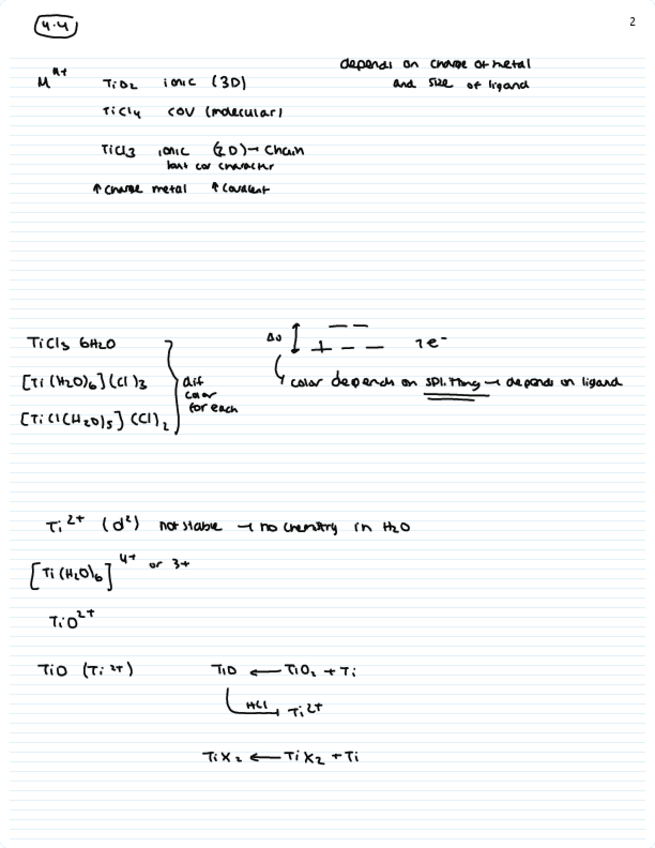 4.4
2
depends on charge of metal
and size of ligand
Mⁿ⁺ TiO2 ionic (3D)
TiCl4 cov (molecular)
TiCl3 ionic (2D) → chain
cov character
↑ charge metal ↑ covalent
TiCl3 6H2O
[Ti(H2O)6](Cl)3
[TiCl(H2O)5](Cl)2
dif
color
for each
Δo 1e⁻
color depends on splitting → depends on ligand
Ti²⁺ (d²) not stable → no chemistry in H2O
[Ti(H2O)6]⁴⁺ or 3+
TiO²⁺
TiO (Ti²⁺) TiO ← TiO2 + Ti
HCl Ti²⁺
TiX2 ← TiX2 + Ti